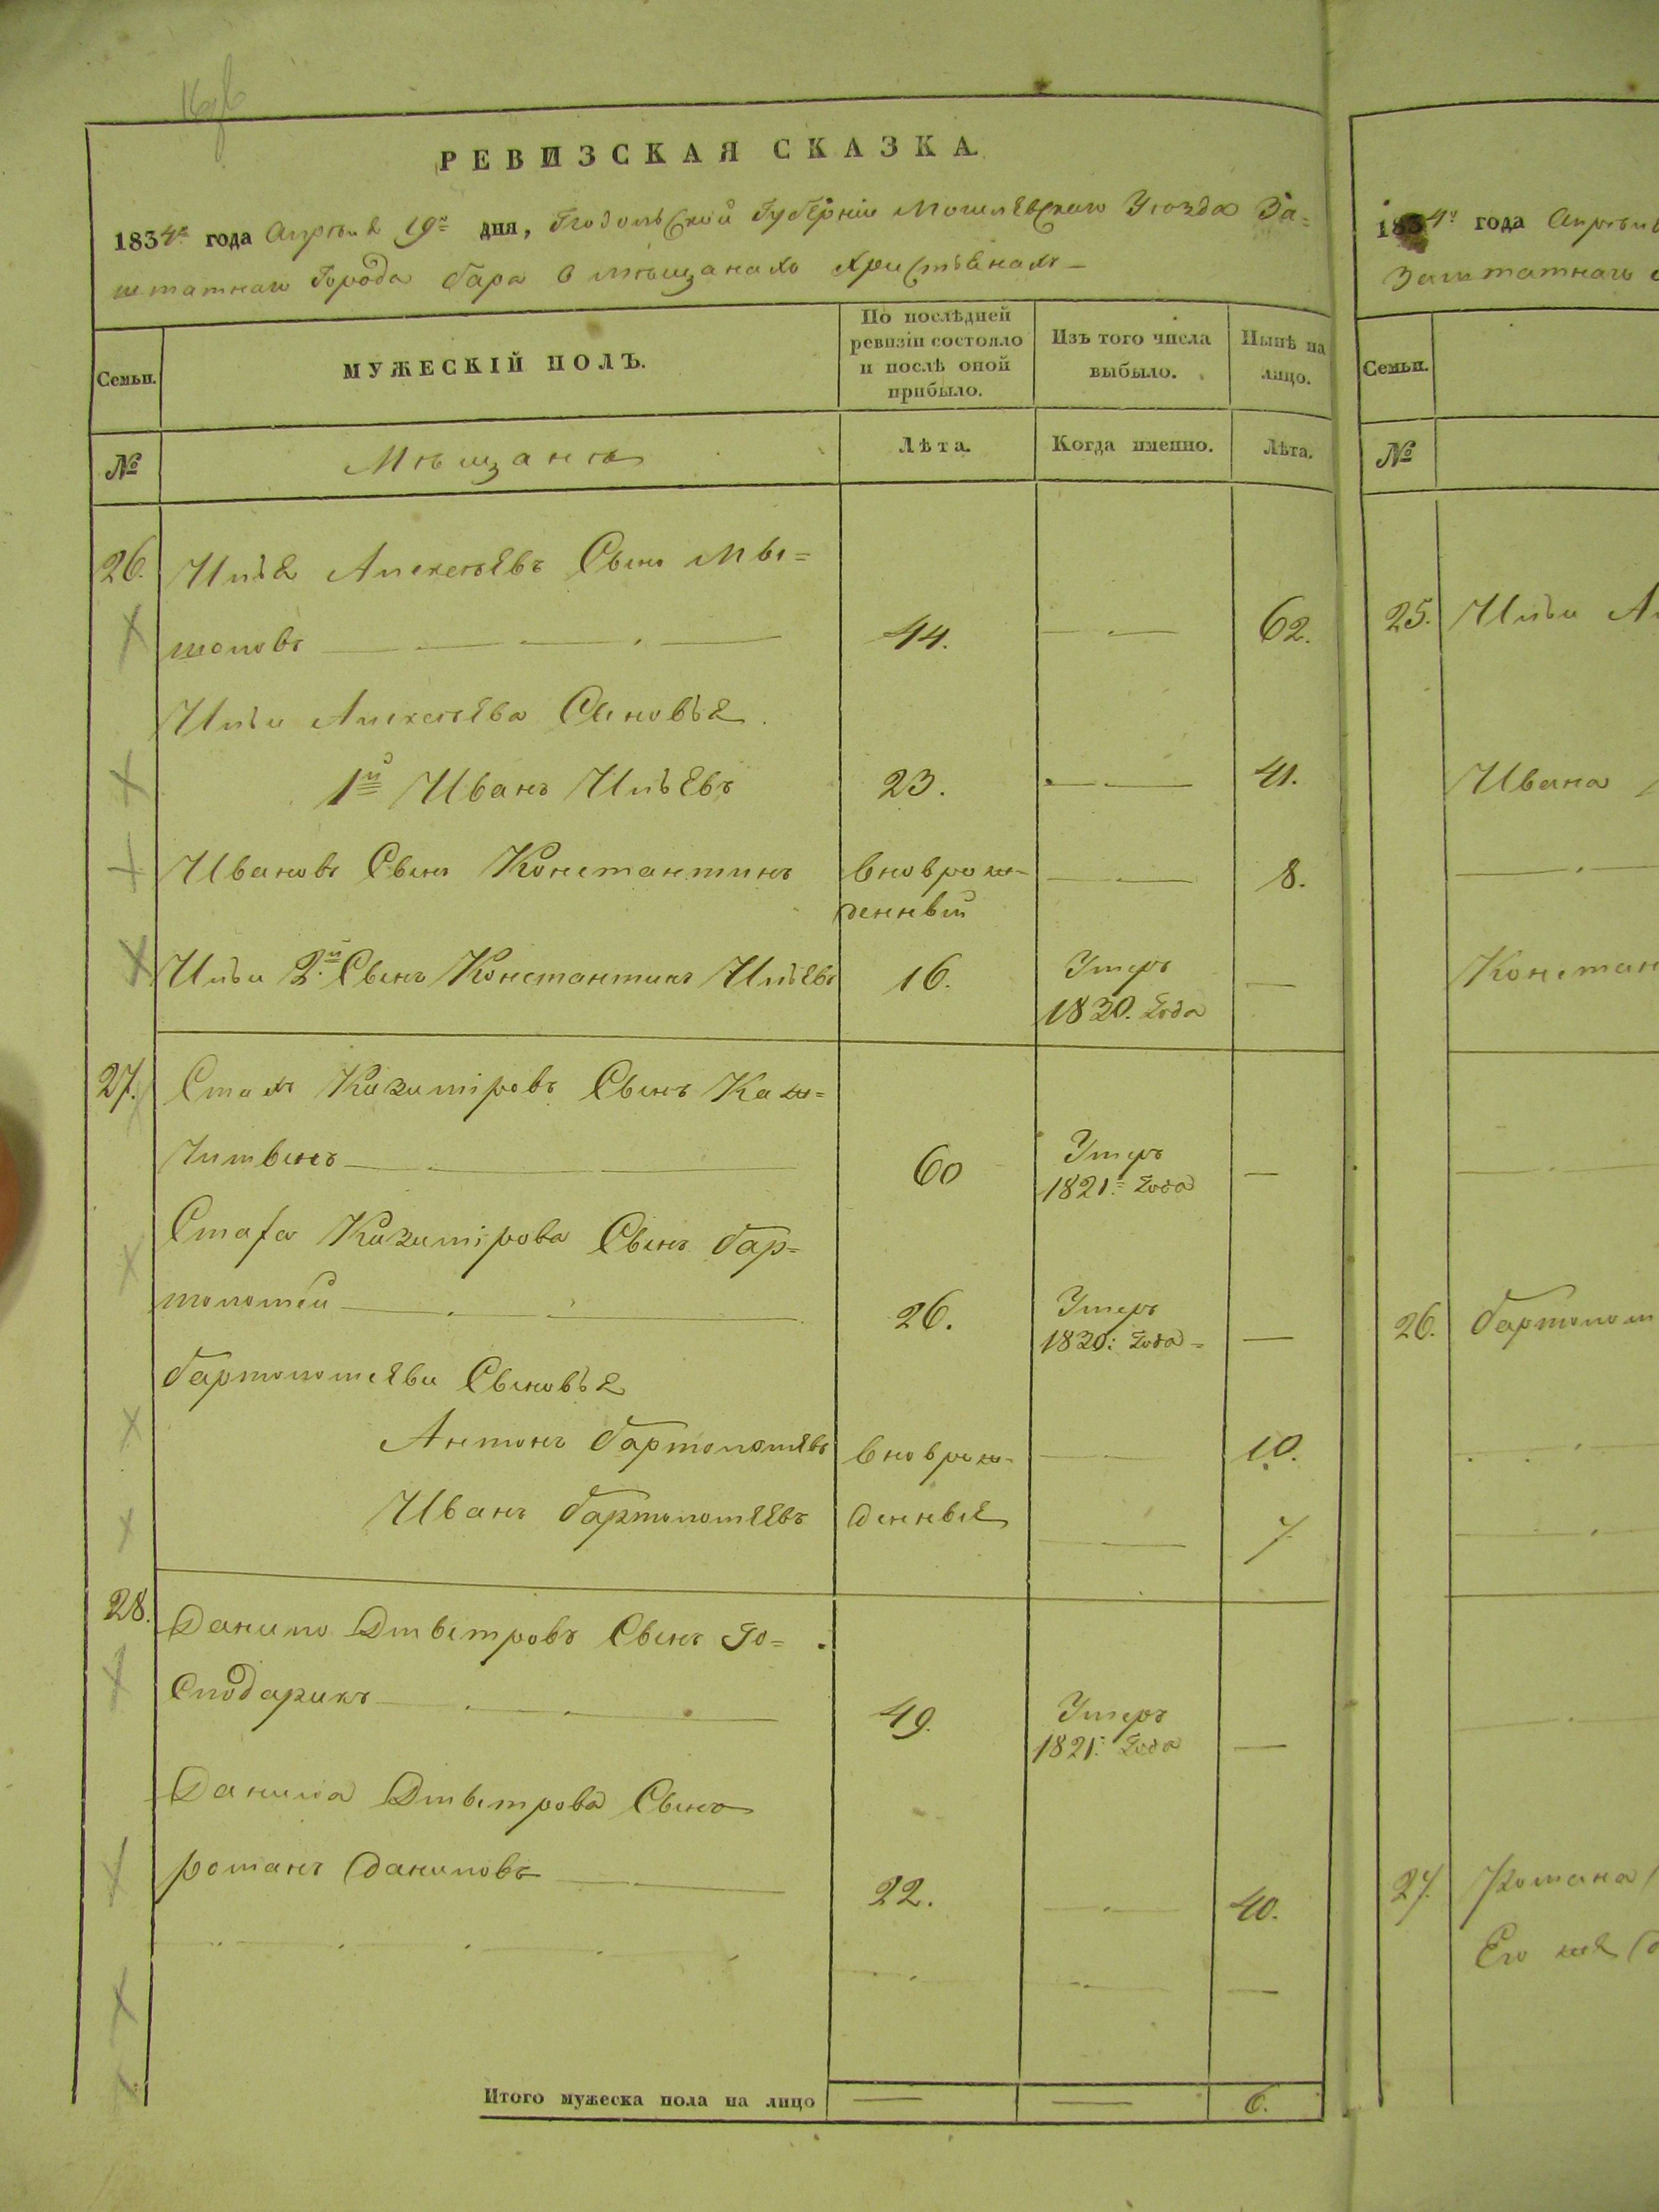 РЕВИЗСКАЯ СКАЗКА
1834го года Апрѣля 19го дня, Подольской Губерніи Могилевскаго Уѣзда За=
штатнаго Города Бара о мѣщанахъ христіанахъ
Семьи.
МУЖЕСКІЙ ПОЛЪ.
По послѣдней
ревизіи состояло
и послѣ оной
прибыло.
Изъ того числа
выбыло.
Нынѣ на
лицо.
№
Мѣщане
Лѣта.
Когда именно.
Лѣта.
26. Илья Алексѣевъ Сынъ Мы=
шоловъ 44. 62.
Ильи Алексѣева Сыновья
1й Иванъ Ильевъ 23. 41.
Ивановъ Сынъ Константинъ вноврож- 8.
денный
Ильи 2й Сынъ Константинъ Ильевъ 16. Умеръ
1830. года
27. Стахъ Казимировъ Сынъ Каш=
литынъ 60 Умеръ
1821. года
Стаха Казимірова Сынъ Бар=
толомей 26. Умеръ
1830: года
Бартоломеевы Сыновья
Антонъ Бартоломеевъ вноврож- 10.
Иванъ Бартоломеевъ денные 7
28. Данило Дмытровъ Сынъ Го=
сподарикъ 49. Умеръ
1821. года
Данила Дмытрова Сынъ
Романъ Даниловъ 22. 40.
Итого мужеска пола на лицо 6.
1834го года Апрѣля
Заштатнаго
Семьи.
№
25. Ильи
Ивана
Констан
26. Бартолом
27. Романа
Его же